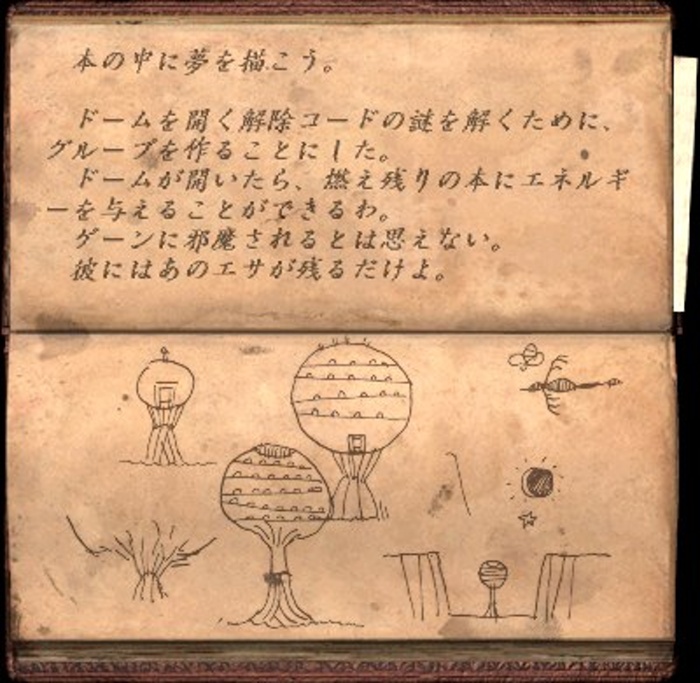 本の中に夢を描こう。
ドームを開く解除コードの謎を解くために、
グループを作ることにした。
ドームが開いたら、燃え残りの本にエネルギ
ーを与えることができるわ。
ゲーンに邪魔されるとは思えない。
彼にはあのエサが残るだけよ。